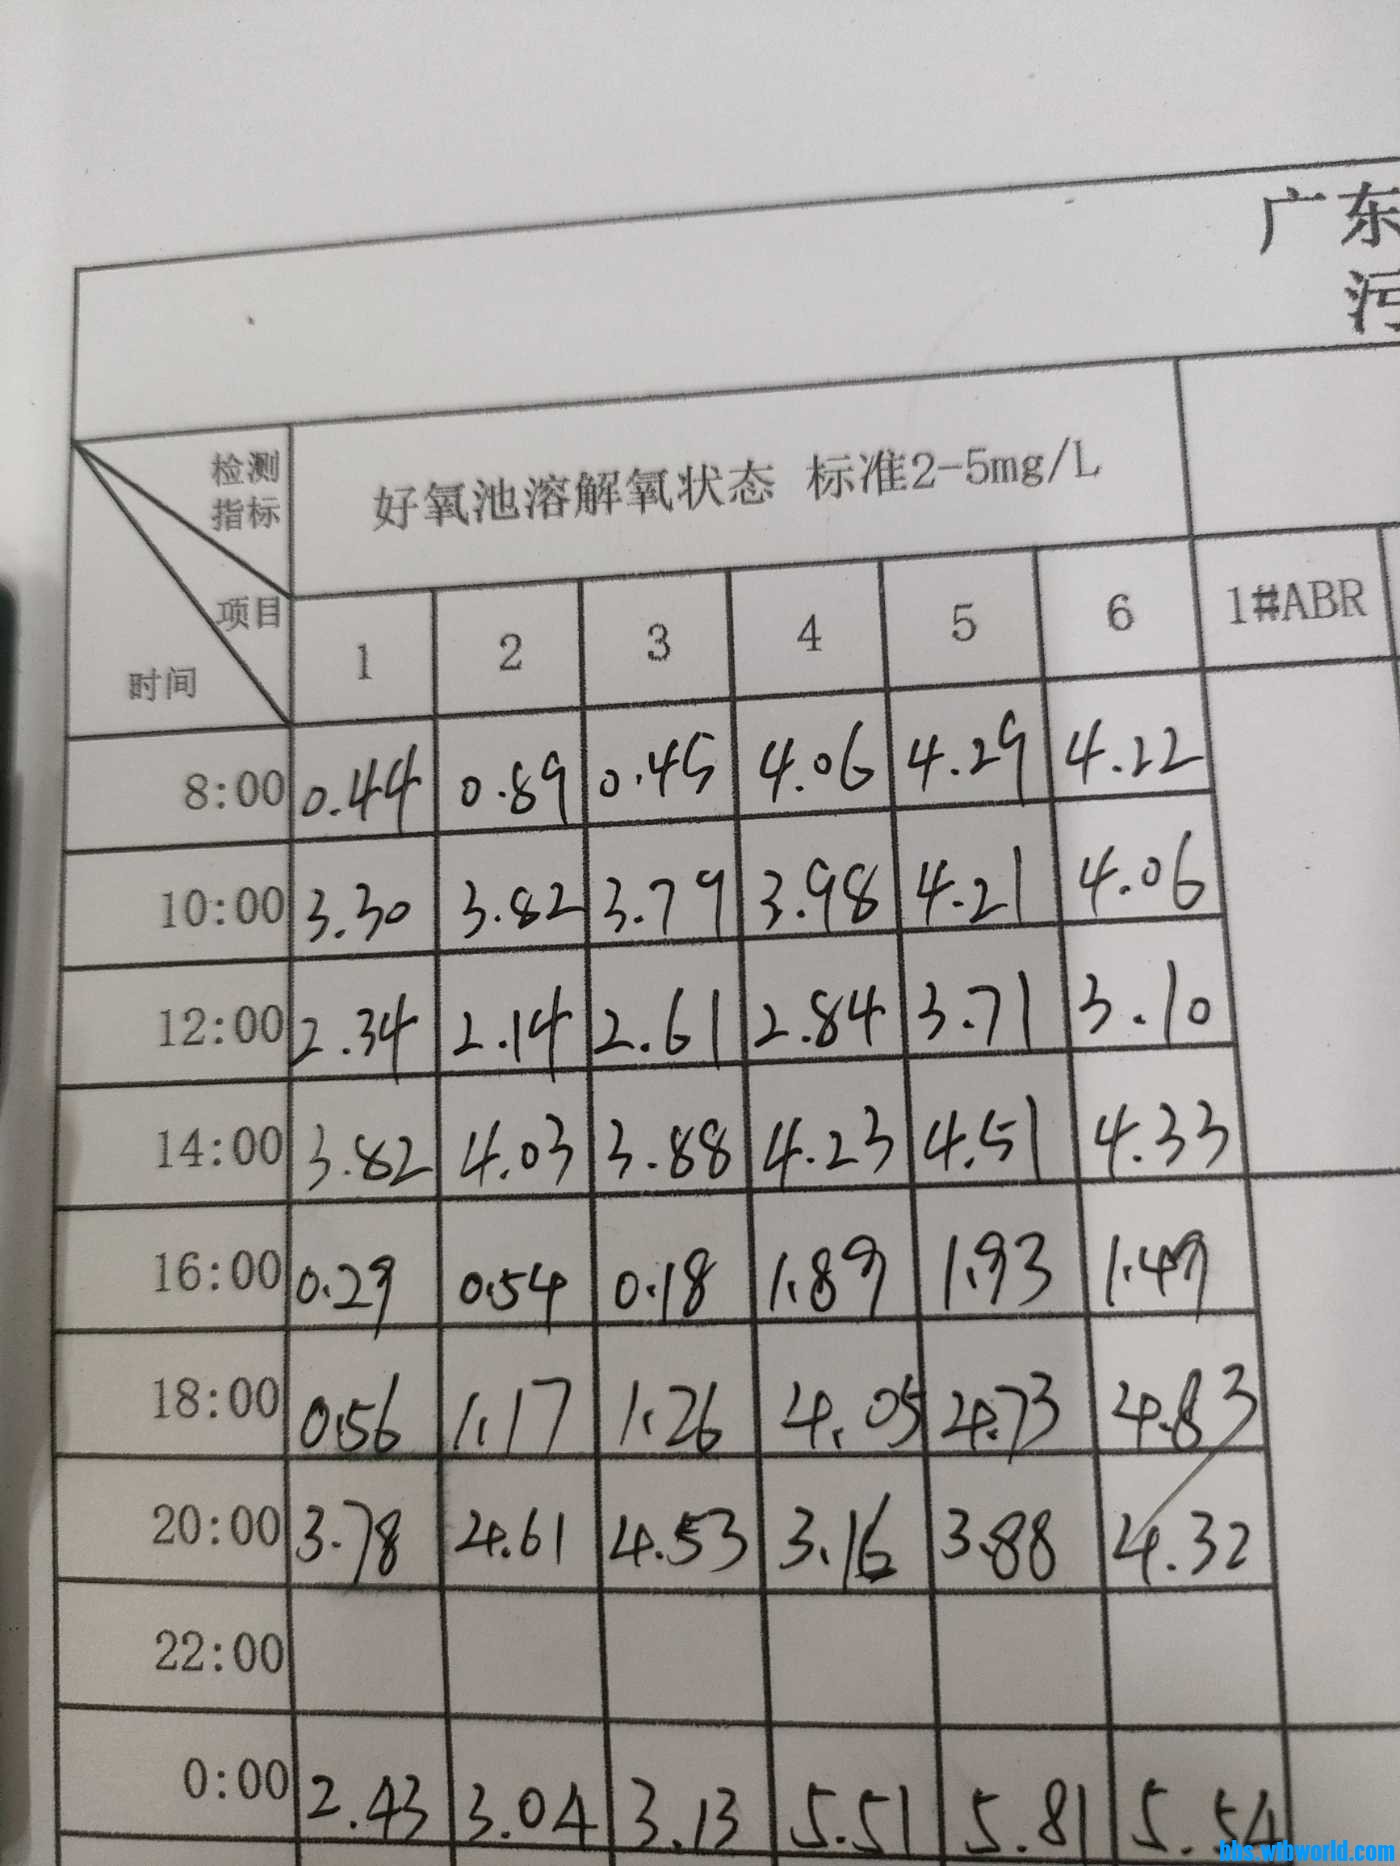 广东
污
检测
指标
项目
时间
好氧池溶解氧状态 标准2-5mg/L
1 2 3 4 5 6 1#ABR
8:00 0.44 0.89 0.45 4.06 4.29 4.22
10:00 3.30 3.82 3.79 3.98 4.21 4.06
12:00 2.34 2.14 2.61 2.84 3.71 3.10
14:00 3.82 4.03 3.88 4.23 4.51 4.33
16:00 0.29 0.54 0.18 1.89 1.93 1.49
18:00 0.56 1.17 1.26 4.05 4.73 4.83
20:00 3.78 4.61 4.53 3.16 3.88 4.32
22:00
0:00 2.43 3.04 3.13 5.51 5.81 5.54
bbs.wtbworld.com